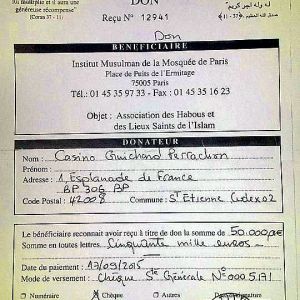 lui multiplie et il aura une
généreuse récompense"
(Coran 57 - 11)
DON
Reçu N° 12941
Don
BENEFICIAIRE
Institut Musulman de la Mosquée de Paris
Place de Puits de l'Ermitage
75005 Paris
Tél.: 01 45 35 97 33 - Fax: 01 45 35 16 23
Objet : Association des Habous et
des Lieux Saints de l'Islam
DONATEUR
Nom : Casino Guichard Perrachon
Prénom :
Adresse : 1, Esplanade de France
BP 306 BP
Code Postal : 42008 Commune : St Etienne Cedex 02
Le bénéficiaire reconnait avoir reçu à titre de don la somme de 50.000,00€
Somme en toutes lettres. Cinquante mille euros
Date du paiement : 17/09/2015
Mode de versement : Chèque Sté Générale N° 0005171
Numéraire Chèque Autres